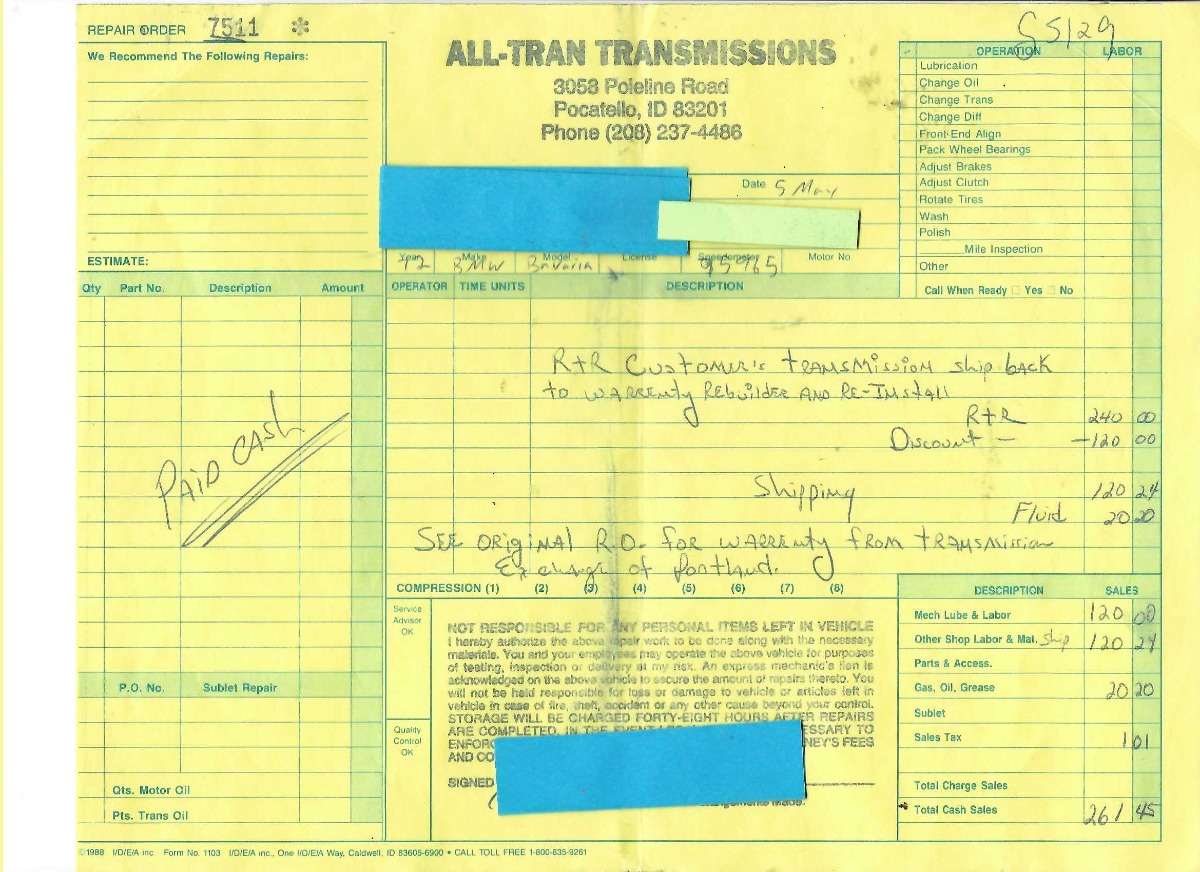 REPAIR ORDER 7511 *
We Recommend The Following Repairs:
ESTIMATE:
ALL-TRAN TRANSMISSIONS
3058 Poleline Road
Pocatello, ID 83201
Phone (208) 237-4486
Date 5 May
Year Make Model License Speedometer Motor No.
72 BMW Bavaria 95965
OPERATION LABOR
Lubrication
Change Oil
Change Trans
Change Diff
Front End Align
Pack Wheel Bearings
Adjust Brakes
Adjust Clutch
Rotate Tires
Wash
Polish
Mile Inspection
Other
Call When Ready Yes No
Qty Part No. Description Amount
OPERATOR TIME UNITS DESCRIPTION
R+R Customer's transmission ship back
to warrenty Rebuilder and Re-Install
R+R 240 00
Discount — -120 00
Shipping 120 24
Fluid 20 20
See original R.O. for warrenty from transmission
Exchange of Portland.
PAID CASH
P.O. No. Sublet Repair
Qts. Motor Oil
Pts. Trans Oil
COMPRESSION (1) (2) (3) (4) (5) (6) (7) (8)
Service
Advisor
OK
Quality
Control
OK
NOT RESPONSIBLE FOR ANY PERSONAL ITEMS LEFT IN VEHICLE
I hereby authorize the above repair work to be done along with the necessary
materials. You and your employees may operate the above vehicle for purposes
of testing, inspection or delivery at my risk. An express mechanic's lien is
acknowledged on the above vehicle to secure the amount of repairs thereto. You
will not be held responsible for loss or damage to vehicle or articles left in
vehicle in case of fire, theft, accident or any other cause beyond your control.
STORAGE WILL BE CHARGED FORTY-EIGHT HOURS AFTER REPAIRS
ARE COMPLETED. IN THE
AND
SIGNED
DESCRIPTION SALES
Mech Lube & Labor 120 00
Other Shop Labor & Mat. Ship 120 24
Parts & Access.
Gas, Oil, Grease 20 20
Sublet
Sales Tax 1 01
Total Charge Sales
Total Cash Sales 261 45
©1988 I/D/E/A inc. Form No. 1103 I/D/E/A inc., One I/D/E/A Way, Caldwell, ID 83605-6900 • CALL TOLL FREE 1-800-635-9261